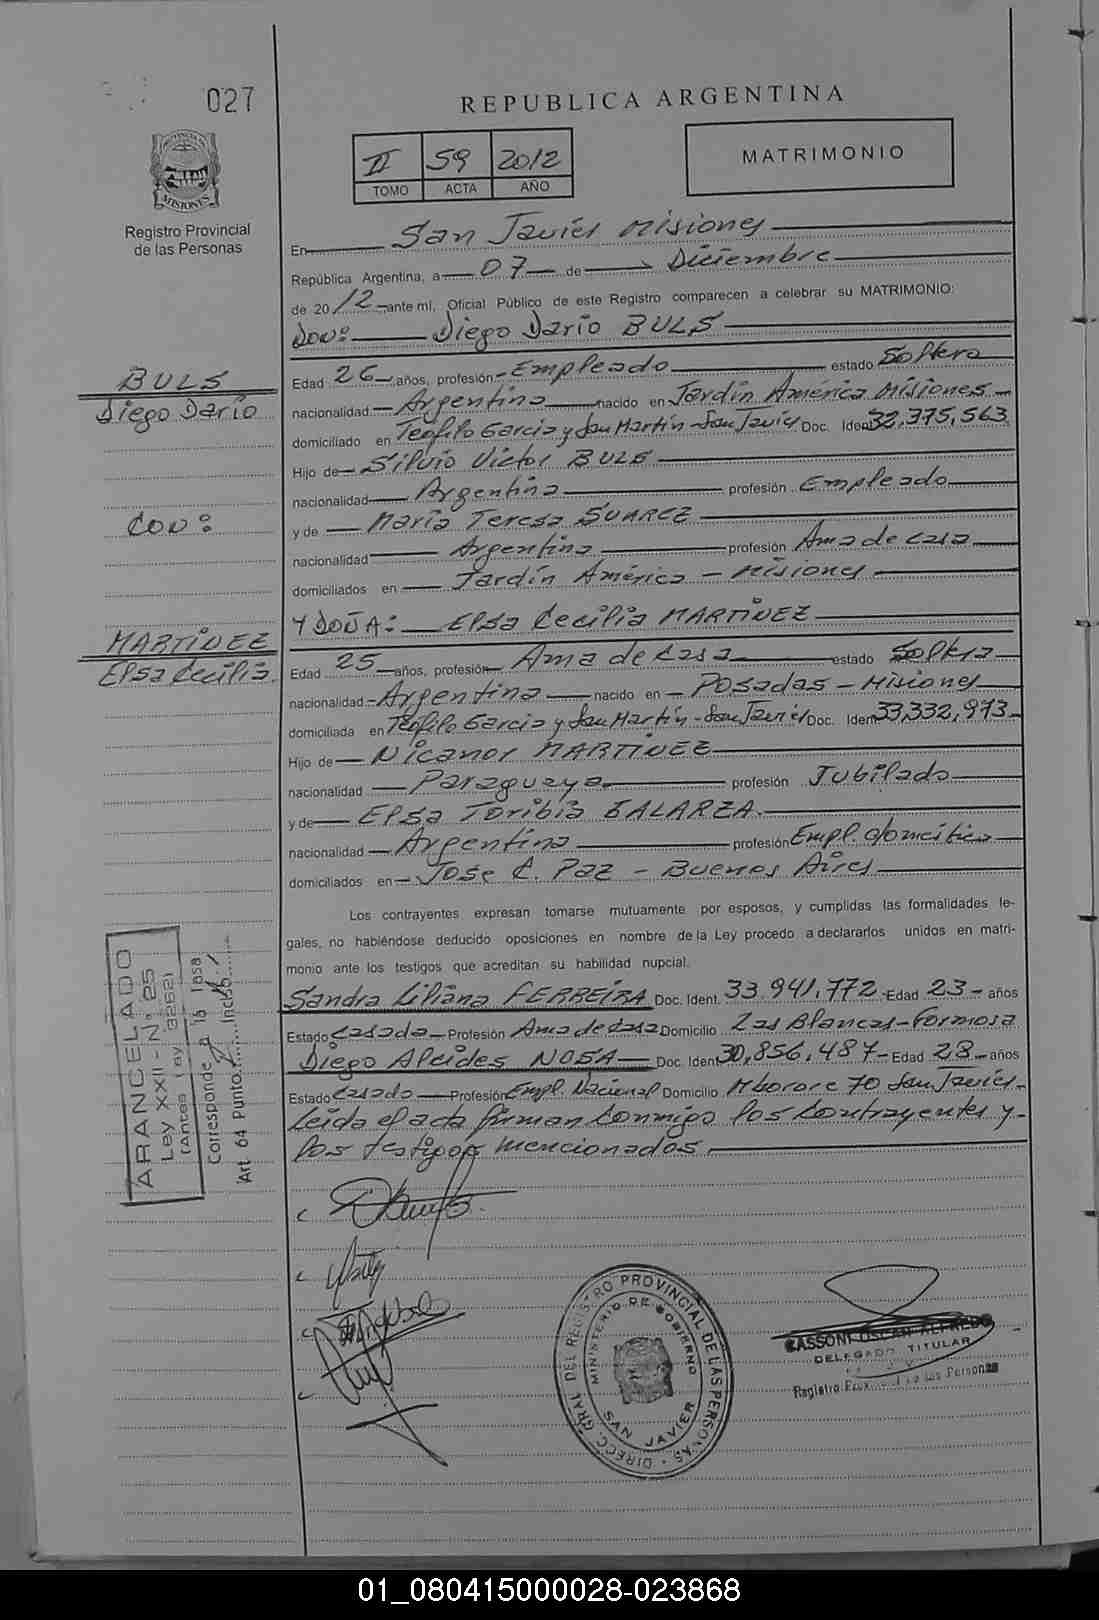 027
REPUBLICA ARGENTINA
II 59 2012
TOMO ACTA AÑO
MATRIMONIO
PROVINCIA DE
MISIONES
Registro Provincial
de las Personas
En San Javier Misiones
República Argentina, a 07 de Diciembre
de 2012 ante mí, Oficial Público de este Registro comparecen a celebrar su MATRIMONIO:
DON: Diego Darío BULS
Edad 26 años, profesión Empleado estado Soltero
nacionalidad Argentina nacido en Jardín América Misiones
domiciliado en Teófilo Garcia y San Martín - San Javier Doc. Ident 32,375,563
Hijo de Silvio Victor BULS
nacionalidad Argentina profesión Empleado
y de María Teresa SUAREZ
nacionalidad Argentina profesión Ama de casa
domiciliados en Jardín América - Misiones
Y DOÑA: Elsa Cecilia MARTINEZ
Edad 25 años, profesión Ama de casa estado Soltera
nacionalidad Argentina nacido en Posadas - Misiones
domiciliada en Teófilo Garcia y San Martín - San Javier Doc. Ident 33,332,973
Hijo de Nicanor MARTINEZ
nacionalidad Paraguaya profesión Jubilado
y de Elsa Toribia GALARZA
nacionalidad Argentina profesión Empl. doméstica
domiciliados en José C. Paz - Buenos Aires
Los contrayentes expresan tomarse mutuamente por esposos, y cumplidas las formalidades le-
gales, no habiéndose deducido oposiciones en nombre de la Ley procedo a declararlos unidos en matri-
monio ante los testigos que acreditan su habilidad nupcial.
Sandra Liliana FERREIRA Doc. Ident. 33.941,772 Edad 23 años
Estado Casada Profesión Ama de casa Domicilio Las Blancas - Formosa
Diego Alcides NOSA Doc. Ident 30,856,487 Edad 28 años
Estado Casado Profesión Empl. Nacional Domicilio Mborore 70 San Javier
Leída el acta firman conmigo los contrayentes y
los testigos mencionados
BULS
Diego Darío
CON:
MARTINEZ
Elsa Cecilia
ARANCELADO
Ley XXII - N° 25
(Antes Ley 3262)
Corresponde a la Tasa
Art. 64 Punto Inciso
DIRECC. GRAL. DEL REGISTRO PROVINCIAL DE LAS PERSONAS
MINISTERIO DE GOBIERNO
SAN JAVIER
CASSONI OSCAR ALFREDO
DELEGADO TITULAR
Registro de las Personas
01_080415000028-023868